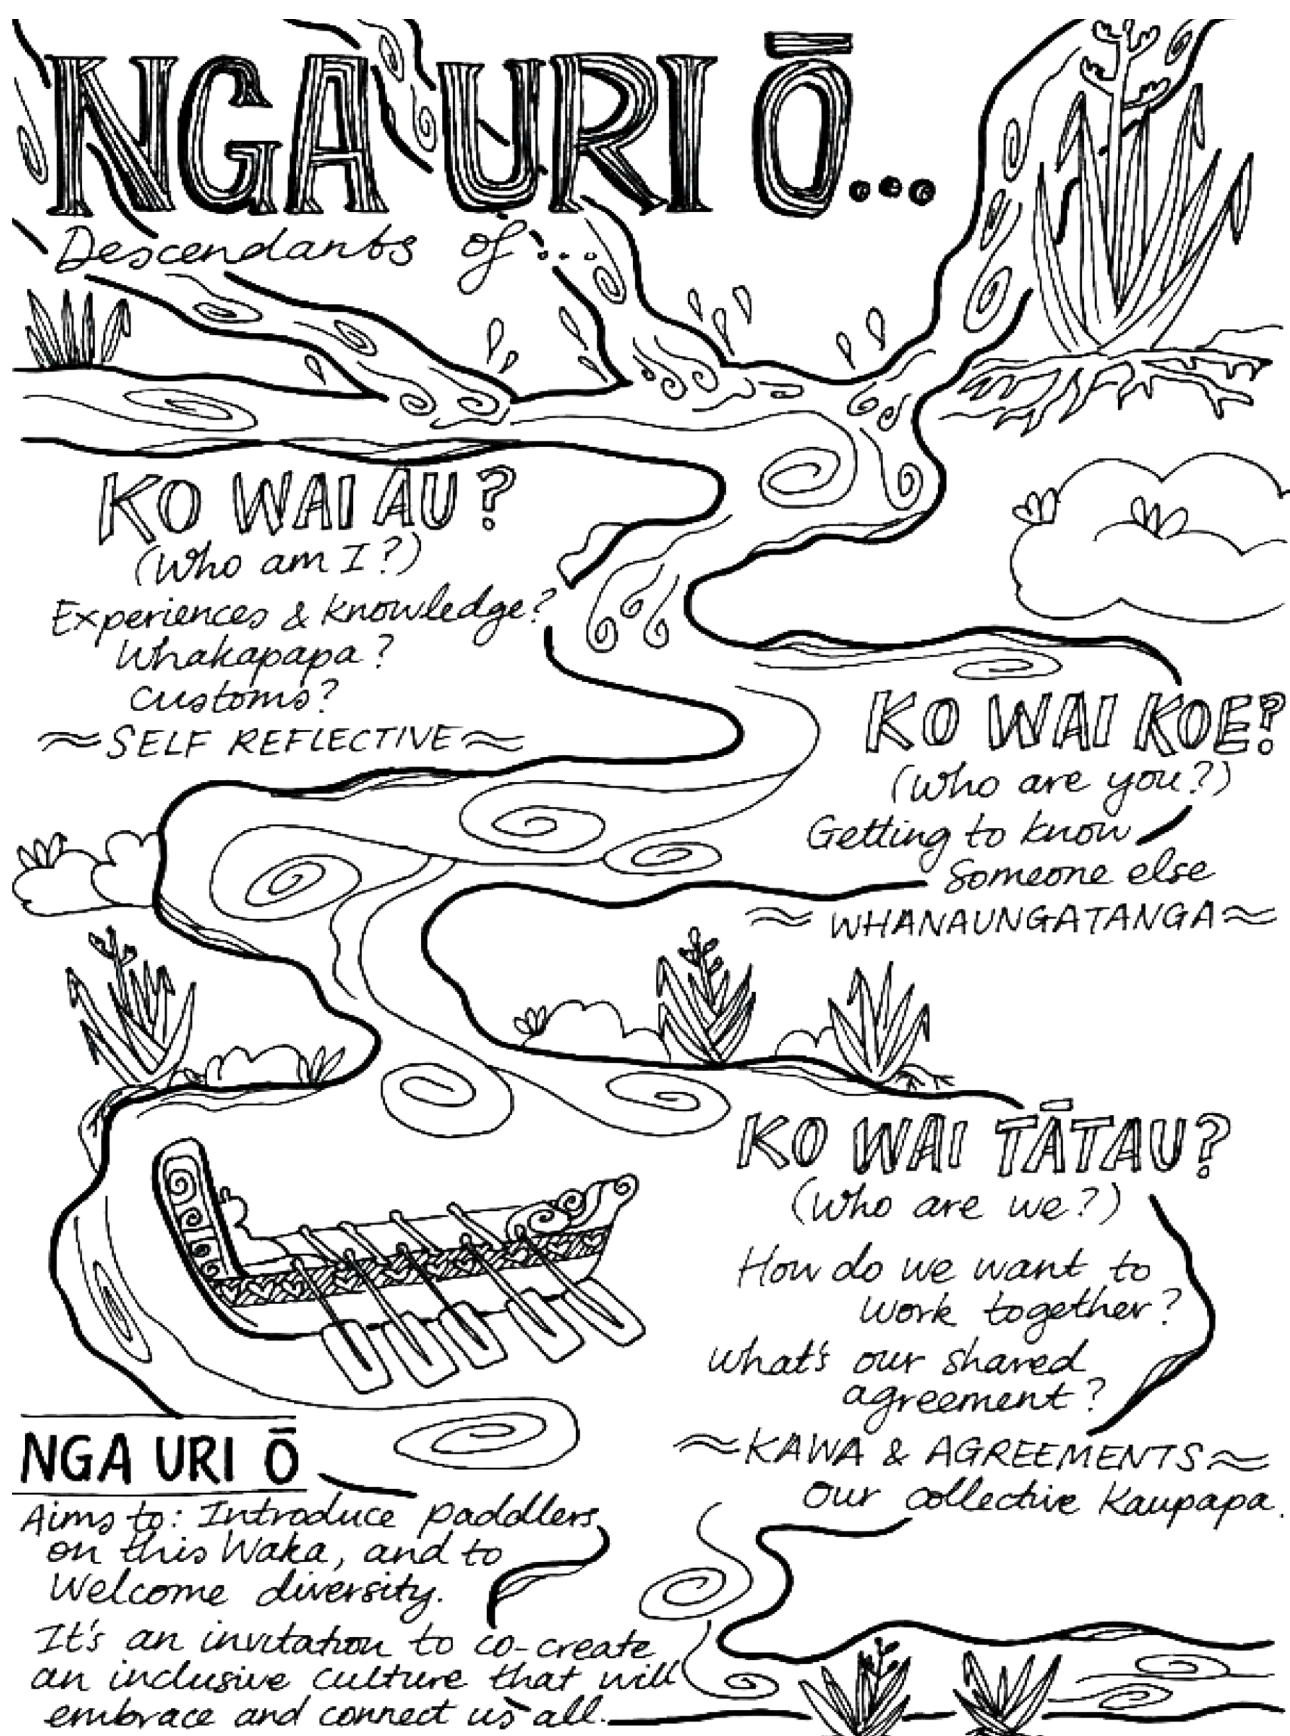 NGA URI Ō...
Descendants of...
KO WAI AU?
(Who am I?)
Experiences & knowledge?
Whakapapa?
customs?
~SELF REFLECTIVE~
KO WAI KOE?
(Who are you?)
Getting to know
Someone else
~WHANAUNGATANGA~
KO WAI TĀTAU?
(Who are we?)
How do we want to
work together?
What's our shared
agreement?
~KAWA & AGREEMENTS~
our collective Kaupapa.
NGA URI Ō
Aims to: Introduce paddlers
on this Waka, and to
Welcome diversity.
It's an invitation to co-create
an inclusive culture that will
embrace and connect us all.